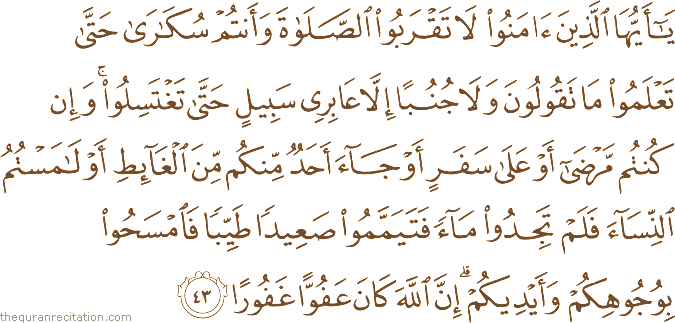 يَـٰٓأَيُّهَا ٱلَّذِينَ ءَامَنُوا۟ لَا تَقْرَبُوا۟ ٱلصَّلَوٰةَ وَأَنتُمْ سُكَـٰرَىٰ حَتَّىٰ
تَعْلَمُوا۟ مَا تَقُولُونَ وَلَا جُنُبًا إِلَّا عَابِرِى سَبِيلٍ حَتَّىٰ تَغْتَسِلُوا۟ ۚ وَإِن
كُنتُم مَّرْضَىٰٓ أَوْ عَلَىٰ سَفَرٍ أَوْ جَآءَ أَحَدٌ مِّنكُم مِّنَ ٱلْغَآئِطِ أَوْ لَـٰمَسْتُمُ
ٱلنِّسَآءَ فَلَمْ تَجِدُوا۟ مَآءً فَتَيَمَّمُوا۟ صَعِيدًا طَيِّبًا فَٱمْسَحُوا۟
بِوُجُوهِكُمْ وَأَيْدِيكُمْ ۗ إِنَّ ٱللَّهَ كَانَ عَفُوًّا غَفُورًا ٤٣
thequranrecitation.com